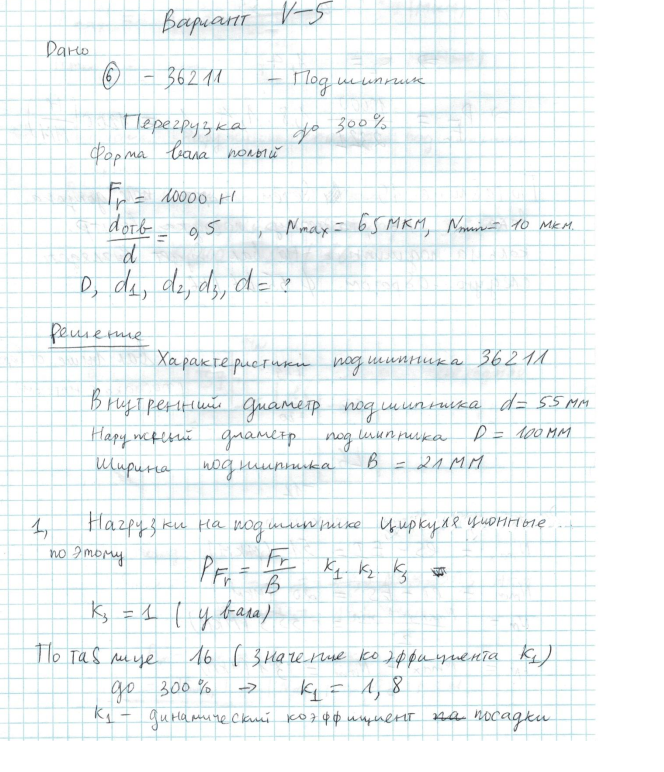 Вариант V-5
Дано
⑥ - 36211 - Подшипник
Перегрузка до 300%
Форма вала полый
Fr = 10000 Н
dотв/d = 0,5 , Nmax = 65 мкм, Nmin = 10 мкм.
D, d1, d2, d3, d = ?
Решение
Характеристики подшипника 36211
Внутренний диаметр подшипника d = 55 мм
Наружный диаметр подшипника D = 100 мм
Ширина подшипника B = 21 мм
1, Нагрузки на подшипнике циркуляционные...
по этому
PFr = Fr/B k1 k2 k3
k3 = 1 (у вала)
По таблице 16 (значение коэффициента k1)
до 300% → k1 = 1,8
k1 - динамический коэффициент посадки